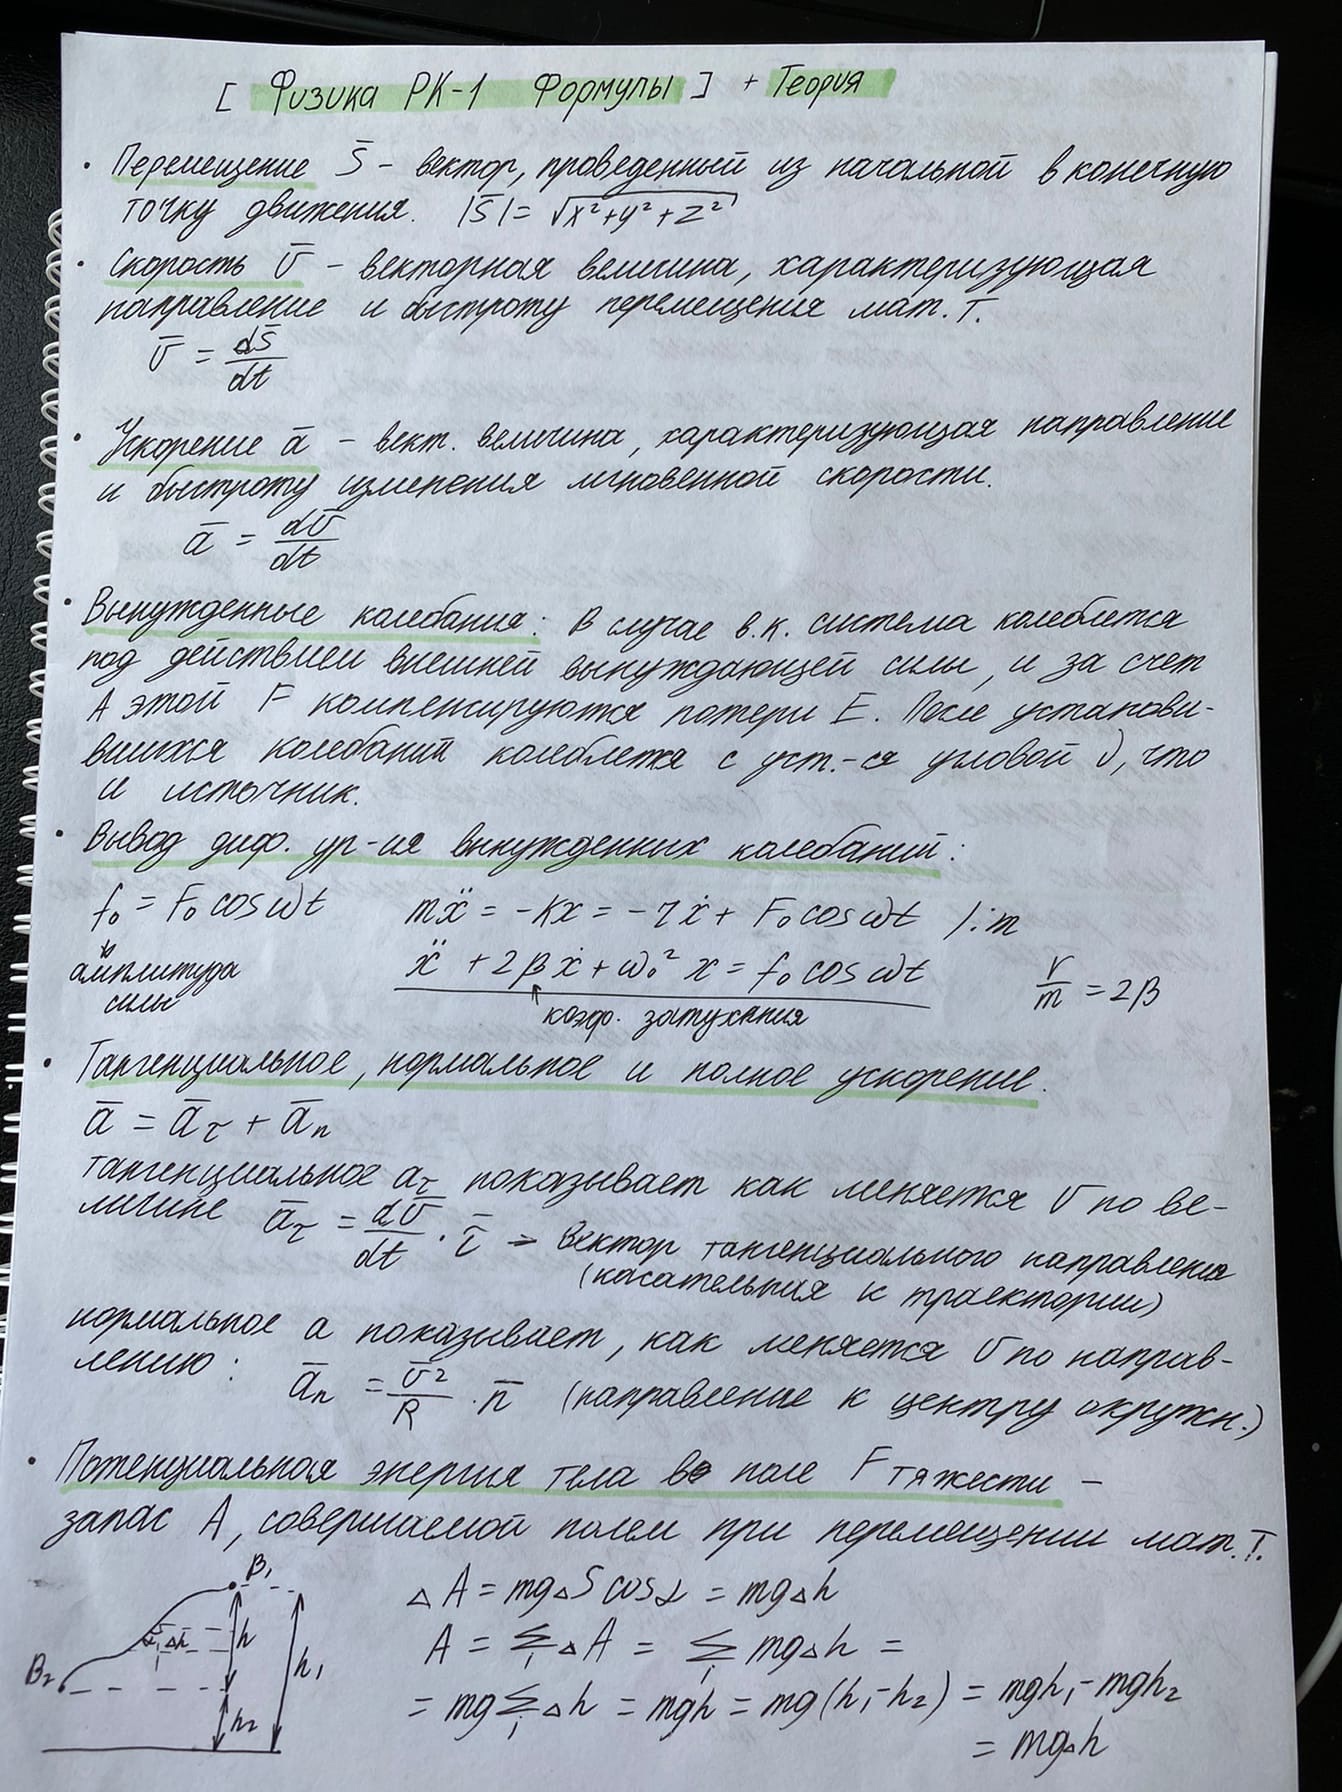 [ Физика РК-1 Формулы ] + Теория
• Перемещение S̄ – вектор, проведенный из начальной в конечную
точку движения. |S̄| = √x²+y²+z²
• Скорость ῡ – векторная величина, характеризующая
направление и быстроту перемещения мат. т.
ῡ = dS̄/dt
• Ускорение ā – вект. величина, характеризующая направление
и быстроту изменения мгновенной скорости.
ā = dῡ/dt
• Вынужденные колебания: В случае в.к. система колеблется
под действием внешней вынуждающей силы, и за счет
А этой F компенсируются потери E. После установи-
вшихся колебаний колеблется с уст.-ся угловой ν, что
и источник.
• Вывод диф. ур-ия вынужденных колебаний:
f₀ = F₀ cos ωt mẍ = -kx = -rẋ + F₀ cos ωt /:m
амплитуда силы ẍ + 2βẋ + ω₀² x = f₀ cos ωt r/m = 2β
коэф. затухания
• Тангенциальное, нормальное и полное ускорение.
ā = ā_τ + ā_n
тангенциальное a_τ показывает как меняется υ по ве-
личине ā_τ = dῡ/dt · τ̄ → вектор тангенциального направления
(касательная к траектории)
нормальное a показывает, как меняется υ по направ-
лению: ā_n = ῡ²/R · n̄ (направление к центру окружн.)
• Потенциальная энергия тела во поле F тяжести –
запас А, совершаемой полем при перемещении мат. т.
B₁ ΔA = mgΔS cosα = mgΔh
α Δh h A = Σᵢ ΔA = Σᵢ mgΔh =
B₂ h₁ = mg Σᵢ Δh = mgh = mg(h₁-h₂) = mgh₁ - mgh₂
h₂ = mgΔh